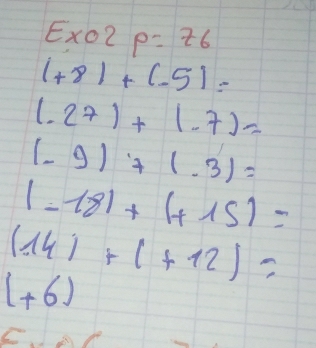 Exo2 p= 76
(+8) + (-5) =
(-27) + (-7) =
(-9) + (-3) =
(-18) + (+15) =
(-14) + (+12) =
(+6)